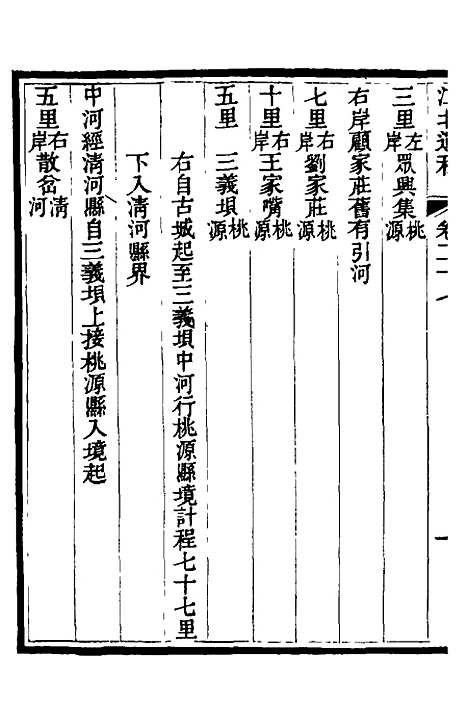 三里左岸眾興集桃源
右岸顧家莊舊有引河
七里右岸劉家莊桃源
十里右岸王家嘴桃源
五里三義垻桃源
右自古城起至三義垻中河行桃源縣境計程七十七里
下入清河縣界
中河經清河縣自三義垻上接桃源縣入境起
五里右岸散岔清河